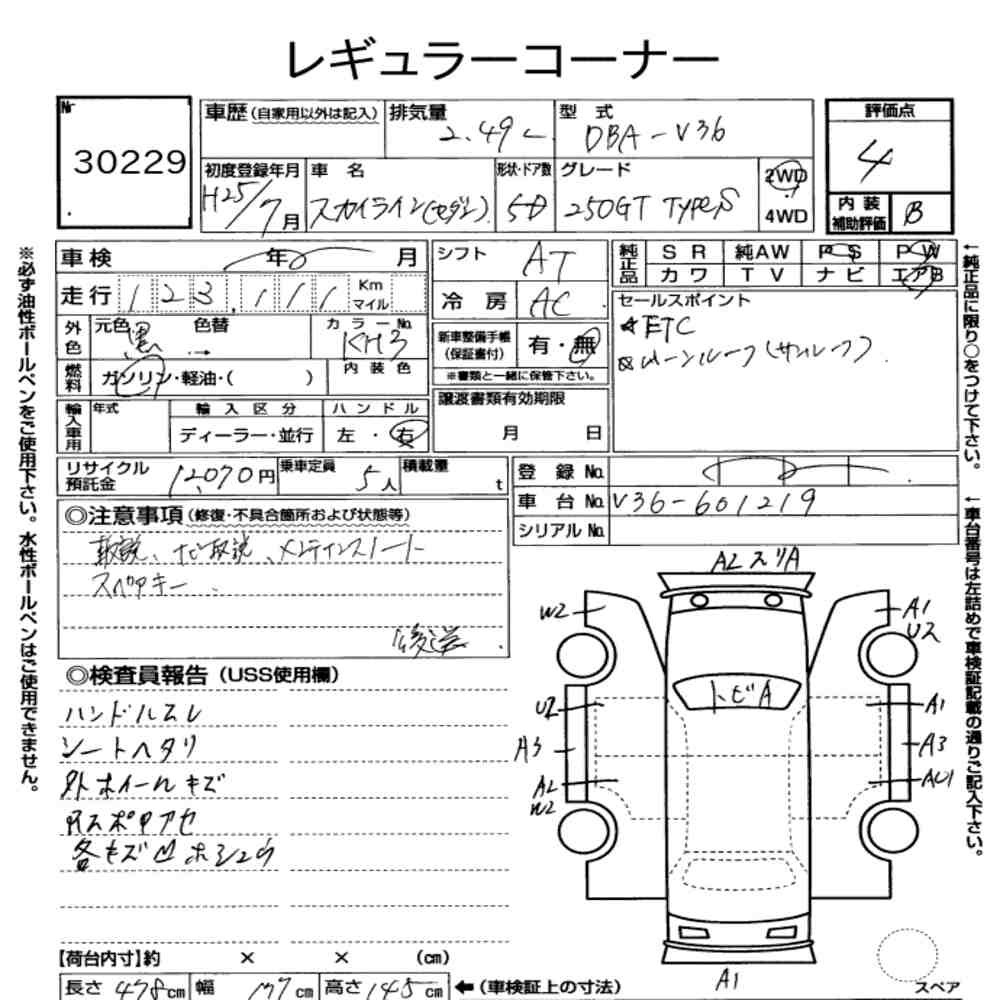 レギュラーコーナー
Nr
30229
車歴(自家用以外は記入)
排気量
2.49L
型式
DBA-V36
評価点
4
初度登録年月
H25/7月
車名
スカイライン(セダン)
形状・ドア数
5D
グレード
250GT TypeS
2WD
4WD
内装
補助評価
B
車検 年 月
シフト
AT
純正品
SR 純AW PS PW
カワ TV ナビ エアB
走行
123,111
Km
マイル
冷房
AC
セールスポイント
ETC
ムーンルーフ(サンルーフ)
外色
元色
黒
色替
カラーNo.
KH3
内装色
新車整備手帳
(保証書付)
有・無
※書類と一緒に保管下さい。
燃料
ガソリン・軽油・( )
譲渡書類有効期限
月 日
輸入車用
年式
輸入区分
ディーラー・並行
ハンドル
左・右
リサイクル
預託金
12,070円
乗車定員
5人
積載量
t
登録No.
車台No.
V36-601219
シリアルNo.
◎注意事項(修復・不具合箇所および状態等)
取説、ナビ取説、メンテナンスノート
スペアキー
後送
◎検査員報告(USS使用欄)
ハンドルスレ
シートヘタリ
外ホイールキズ
Rスポアセ
各キズ凹ホシュウ
A2スリA
W2
A1
U2
トビA
U2
A1
A3
A3
A2
W2
AU1
A1
スペア
【荷台内寸】約 × × (cm)
長さ 478cm 幅 177cm 高さ 145cm
←(車検証上の寸法)
※必ず油性ボールペンをご使用下さい。水性ボールペンはご使用できません。
←純正品に限り○をつけて下さい。
←車台番号は左詰めで車検証記載の通りご記入下さい。